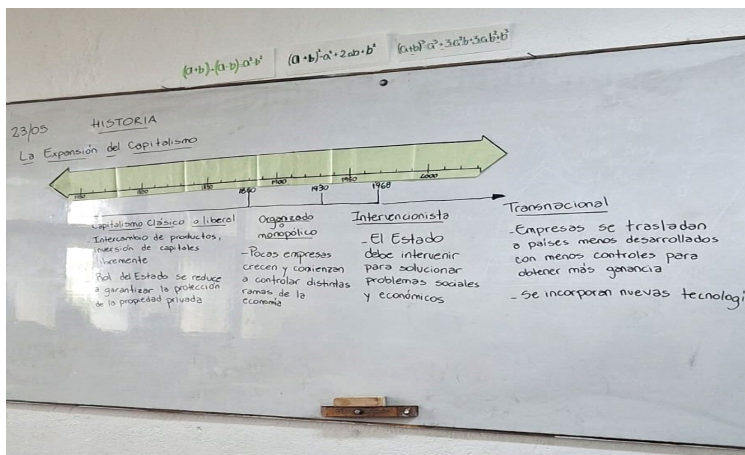 (a+b)·(a-b)=a²-b²
(a+b)²=a²+2ab+b²
(a+b)³=a³+3a²b+3ab²+b³
23/05 HISTORIA
La Expansión del Capitalismo
1750 1800 1850 1900 1950 2000
1890 1930 1968
Capitalismo Clásico o liberal
- Intercambio de productos,
inversión de capitales
libremente
- Rol del Estado se reduce
a garantizar la protección
de la propiedad privada
Organizado
o
monopólico
- Pocas empresas
crecen y comienzan
a controlar distintas
ramas de la
economía
Intervencionista
- El Estado
debe intervenir
para solucionar
problemas sociales
y económicos
Transnacional
- Empresas se trasladan
a países menos desarrollados
con menos controles para
obtener más ganancia
- Se incorporan nuevas tecnologí